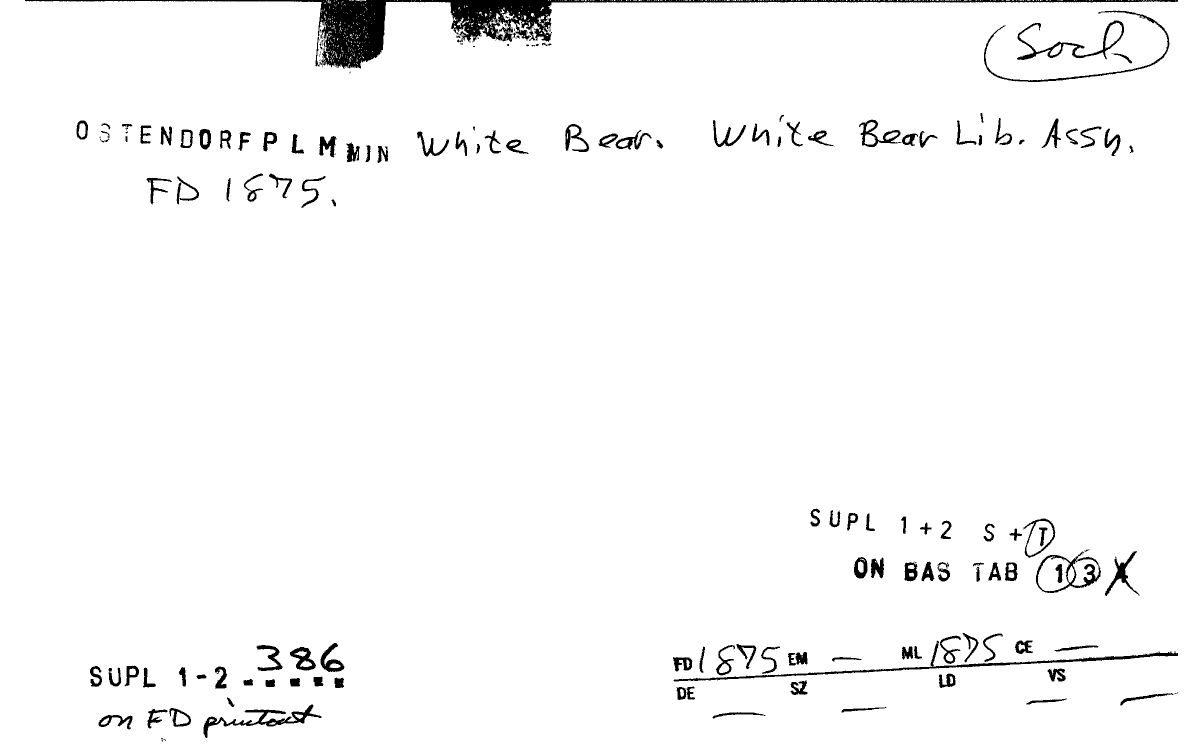 Soch
OSTENDORF P L M MIN White Bear. White Bear Lib. Assn.
FD 1875.
SUPL 1+2 S+T
ON BAS TAB 1 3
SUPL 1-2 386
on FD printout
FD 1875 EM — ML 1875 CE —
DE — SZ — LD — VS —